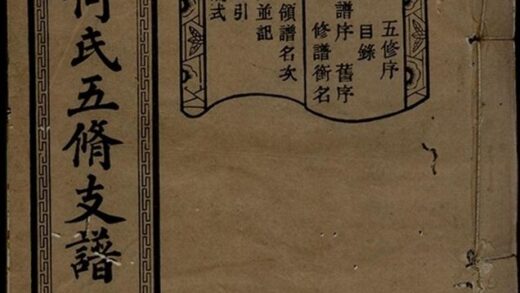 五修序
目錄
譜序 舊序
修譜銜名
領譜名次
並記
引
式
何氏五脩支譜